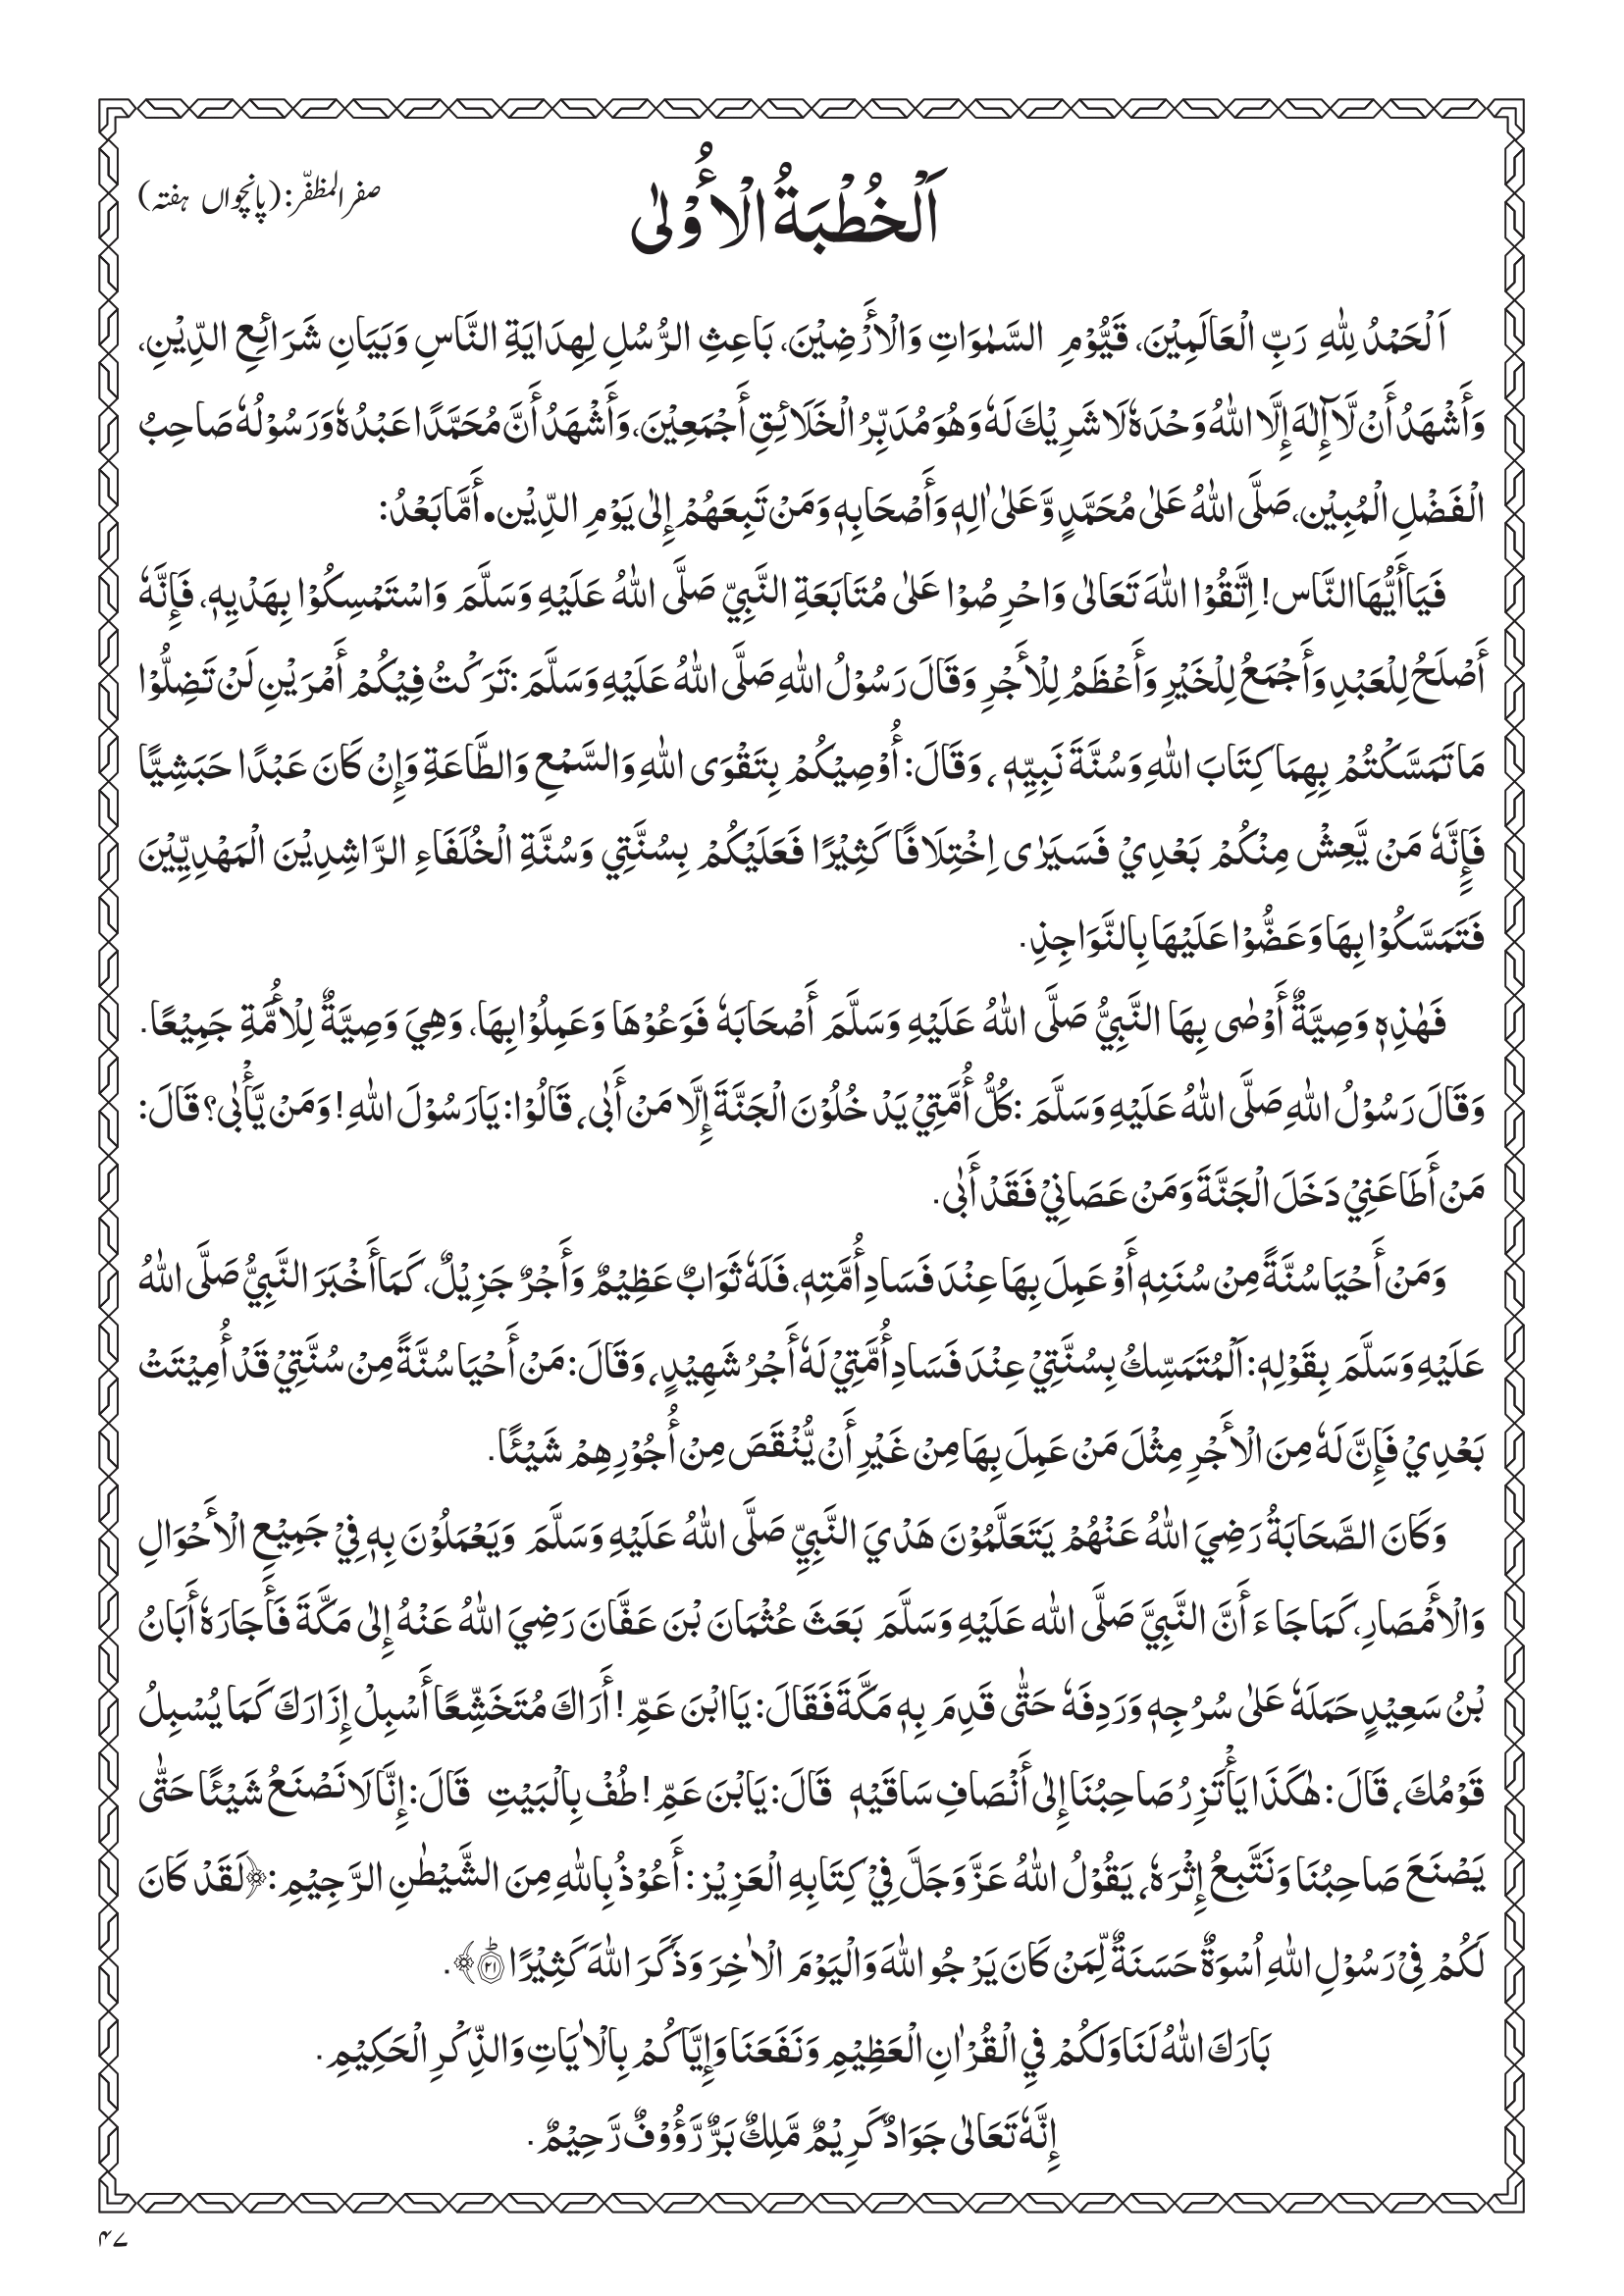 صفر المظفّر: (پانچواں ہفتہ)
اَلْخُطْبَةُ الْأُوْلٰى
اَلْحَمْدُ لِلّٰهِ رَبِّ الْعَالَمِيْنَ، قَيُّوْمِ السَّمٰوَاتِ وَالْأَرْضِيْنَ، بَاعِثِ الرُّسُلِ لِهِدَايَةِ النَّاسِ وَبَيَانِ شَرَائِعِ الدِّيْنِ،
وَأَشْهَدُ أَنْ لَّآ إِلٰهَ إِلَّا اللهُ وَحْدَهٗ لَا شَرِيْكَ لَهٗ وَهُوَ مُدَبِّرُ الْخَلَائِقِ أَجْمَعِيْنَ، وَأَشْهَدُ أَنَّ مُحَمَّدًا عَبْدُهٗ وَرَسُوْلُهٗ صَاحِبُ
الْفَضْلِ الْمُبِيْن، صَلَّى اللهُ عَلٰى مُحَمَّدٍ وَّعَلٰى اٰلِهٖ وَأَصْحَابِهٖ وَمَنْ تَبِعَهُمْ إِلٰى يَوْمِ الدِّيْن. أَمَّا بَعْدُ:
فَيَا أَيُّهَا النَّاس! اِتَّقُوْا اللهَ تَعَالٰى وَاحْرِصُوْا عَلٰى مُتَابَعَةِ النَّبِيِّ صَلَّى اللهُ عَلَيْهِ وَسَلَّمَ وَاسْتَمْسِكُوْا بِهَدْيِهٖ، فَإِنَّهٗ
أَصْلَحُ لِلْعَبْدِ وَأَجْمَعُ لِلْخَيْرِ وَأَعْظَمُ لِلْأَجْرِ وَقَالَ رَسُوْلُ اللهِ صَلَّى اللهُ عَلَيْهِ وَسَلَّمَ: تَرَكْتُ فِيْكُمْ أَمْرَيْنِ لَنْ تَضِلُّوْا
مَا تَمَسَّكْتُمْ بِهِمَا كِتَابَ اللهِ وَسُنَّةَ نَبِيِّهٖ، وَقَالَ: أُوْصِيْكُمْ بِتَقْوَى اللهِ وَالسَّمْعِ وَالطَّاعَةِ وَإِنْ كَانَ عَبْدًا حَبَشِيًّا
فَإِنَّهٗ مَنْ يَّعِشْ مِنْكُمْ بَعْدِيْ فَسَيَرٰى اِخْتِلَافًا كَثِيْرًا فَعَلَيْكُمْ بِسُنَّتِي وَسُنَّةِ الْخُلَفَاءِ الرَّاشِدِيْنَ الْمَهْدِيِّيْنَ
فَتَمَسَّكُوْا بِهَا وَعَضُّوْا عَلَيْهَا بِالنَّوَاجِذِ.
فَهٰذِهٖ وَصِيَّةٌ أَوْصٰى بِهَا النَّبِيُّ صَلَّى اللهُ عَلَيْهِ وَسَلَّمَ أَصْحَابَهٗ فَوَعُوْهَا وَعَمِلُوْا بِهَا، وَهِيَ وَصِيَّةٌ لِلْأُمَّةِ جَمِيْعًا.
وَقَالَ رَسُوْلُ اللهِ صَلَّى اللهُ عَلَيْهِ وَسَلَّمَ: كُلُّ أُمَّتِيْ يَدْخُلُوْنَ الْجَنَّةَ إِلَّا مَنْ أَبٰى، قَالُوْا: يَا رَسُوْلَ اللهِ! وَمَنْ يَّأْبٰى؟ قَالَ:
مَنْ أَطَاعَنِيْ دَخَلَ الْجَنَّةَ وَمَنْ عَصَانِيْ فَقَدْ أَبٰى.
وَمَنْ أَحْيَا سُنَّةً مِنْ سُنَنِهٖ أَوْ عَمِلَ بِهَا عِنْدَ فَسَادِ أُمَّتِهٖ، فَلَهٗ ثَوَابٌ عَظِيْمٌ وَأَجْرٌ جَزِيْلٌ، كَمَا أَخْبَرَ النَّبِيُّ صَلَّى اللهُ
عَلَيْهِ وَسَلَّمَ بِقَوْلِهٖ: اَلْمُتَمَسِّكُ بِسُنَّتِيْ عِنْدَ فَسَادِ أُمَّتِيْ لَهٗ أَجْرُ شَهِيْدٍ، وَقَالَ: مَنْ أَحْيَا سُنَّةً مِنْ سُنَّتِيْ قَدْ أُمِيْتَتْ
بَعْدِيْ فَإِنَّ لَهٗ مِنَ الْأَجْرِ مِثْلَ مَنْ عَمِلَ بِهَا مِنْ غَيْرِ أَنْ يُّنْقَصَ مِنْ أُجُوْرِهِمْ شَيْئًا.
وَكَانَ الصَّحَابَةُ رَضِيَ اللهُ عَنْهُمْ يَتَعَلَّمُوْنَ هَدْيَ النَّبِيِّ صَلَّى اللهُ عَلَيْهِ وَسَلَّمَ وَيَعْمَلُوْنَ بِهٖ فِيْ جَمِيْعِ الْأَحْوَالِ
وَالْأَمْصَارِ، كَمَا جَاءَ أَنَّ النَّبِيَّ صَلَّى الله عَلَيْهِ وَسَلَّمَ بَعَثَ عُثْمَانَ بْنَ عَفَّانَ رَضِيَ اللهُ عَنْهُ إِلٰى مَكَّةَ فَأَجَارَهٗ أَبَانُ
بْنُ سَعِيْدٍ حَمَلَهٗ عَلٰى سُرُجِهٖ وَرَدِفَهٗ حَتّٰى قَدِمَ بِهٖ مَكَّةَ فَقَالَ: يَا ابْنَ عَمِّ! أَرَاكَ مُتَخَشِّعًا أَسْبِلْ إِزَارَكَ كَمَا يُسْبِلُ
قَوْمُكَ، قَالَ: هٰكَذَا يَأْتَزِرُ صَاحِبُنَا إِلٰى أَنْصَافِ سَاقَيْهِ قَالَ: يَابْنَ عَمِّ! طُفْ بِالْبَيْتِ قَالَ: إِنَّا لَا نَصْنَعُ شَيْئًا حَتّٰى
يَصْنَعَ صَاحِبُنَا وَنَتَّبِعُ إِثْرَهٗ، يَقُوْلُ اللهُ عَزَّ وَجَلَّ فِيْ كِتَابِهِ الْعَزِيْز: أَعُوْذُ بِاللهِ مِنَ الشَّيْطٰنِ الرَّجِيْمِ: ﴿لَقَدْ كَانَ
لَكُمْ فِيْ رَسُوْلِ اللهِ اُسْوَةٌ حَسَنَةٌ لِّمَنْ كَانَ يَرْجُو اللهَ وَالْيَوْمَ الْاٰخِرَ وَذَكَرَ اللهَ كَثِيْرًا ؕ۲۱﴾.
بَارَكَ اللهُ لَنَا وَلَكُمْ فِي الْقُرْاٰنِ الْعَظِيْمِ وَنَفَعَنَا وَإِيَّاكُمْ بِالْاٰيَاتِ وَالذِّكْرِ الْحَكِيْمِ.
إِنَّهٗ تَعَالٰى جَوَادٌ كَرِيْمٌ مَّلِكٌ بَرٌّ رَّؤُوْفٌ رَّحِيْمٌ.
۴۷